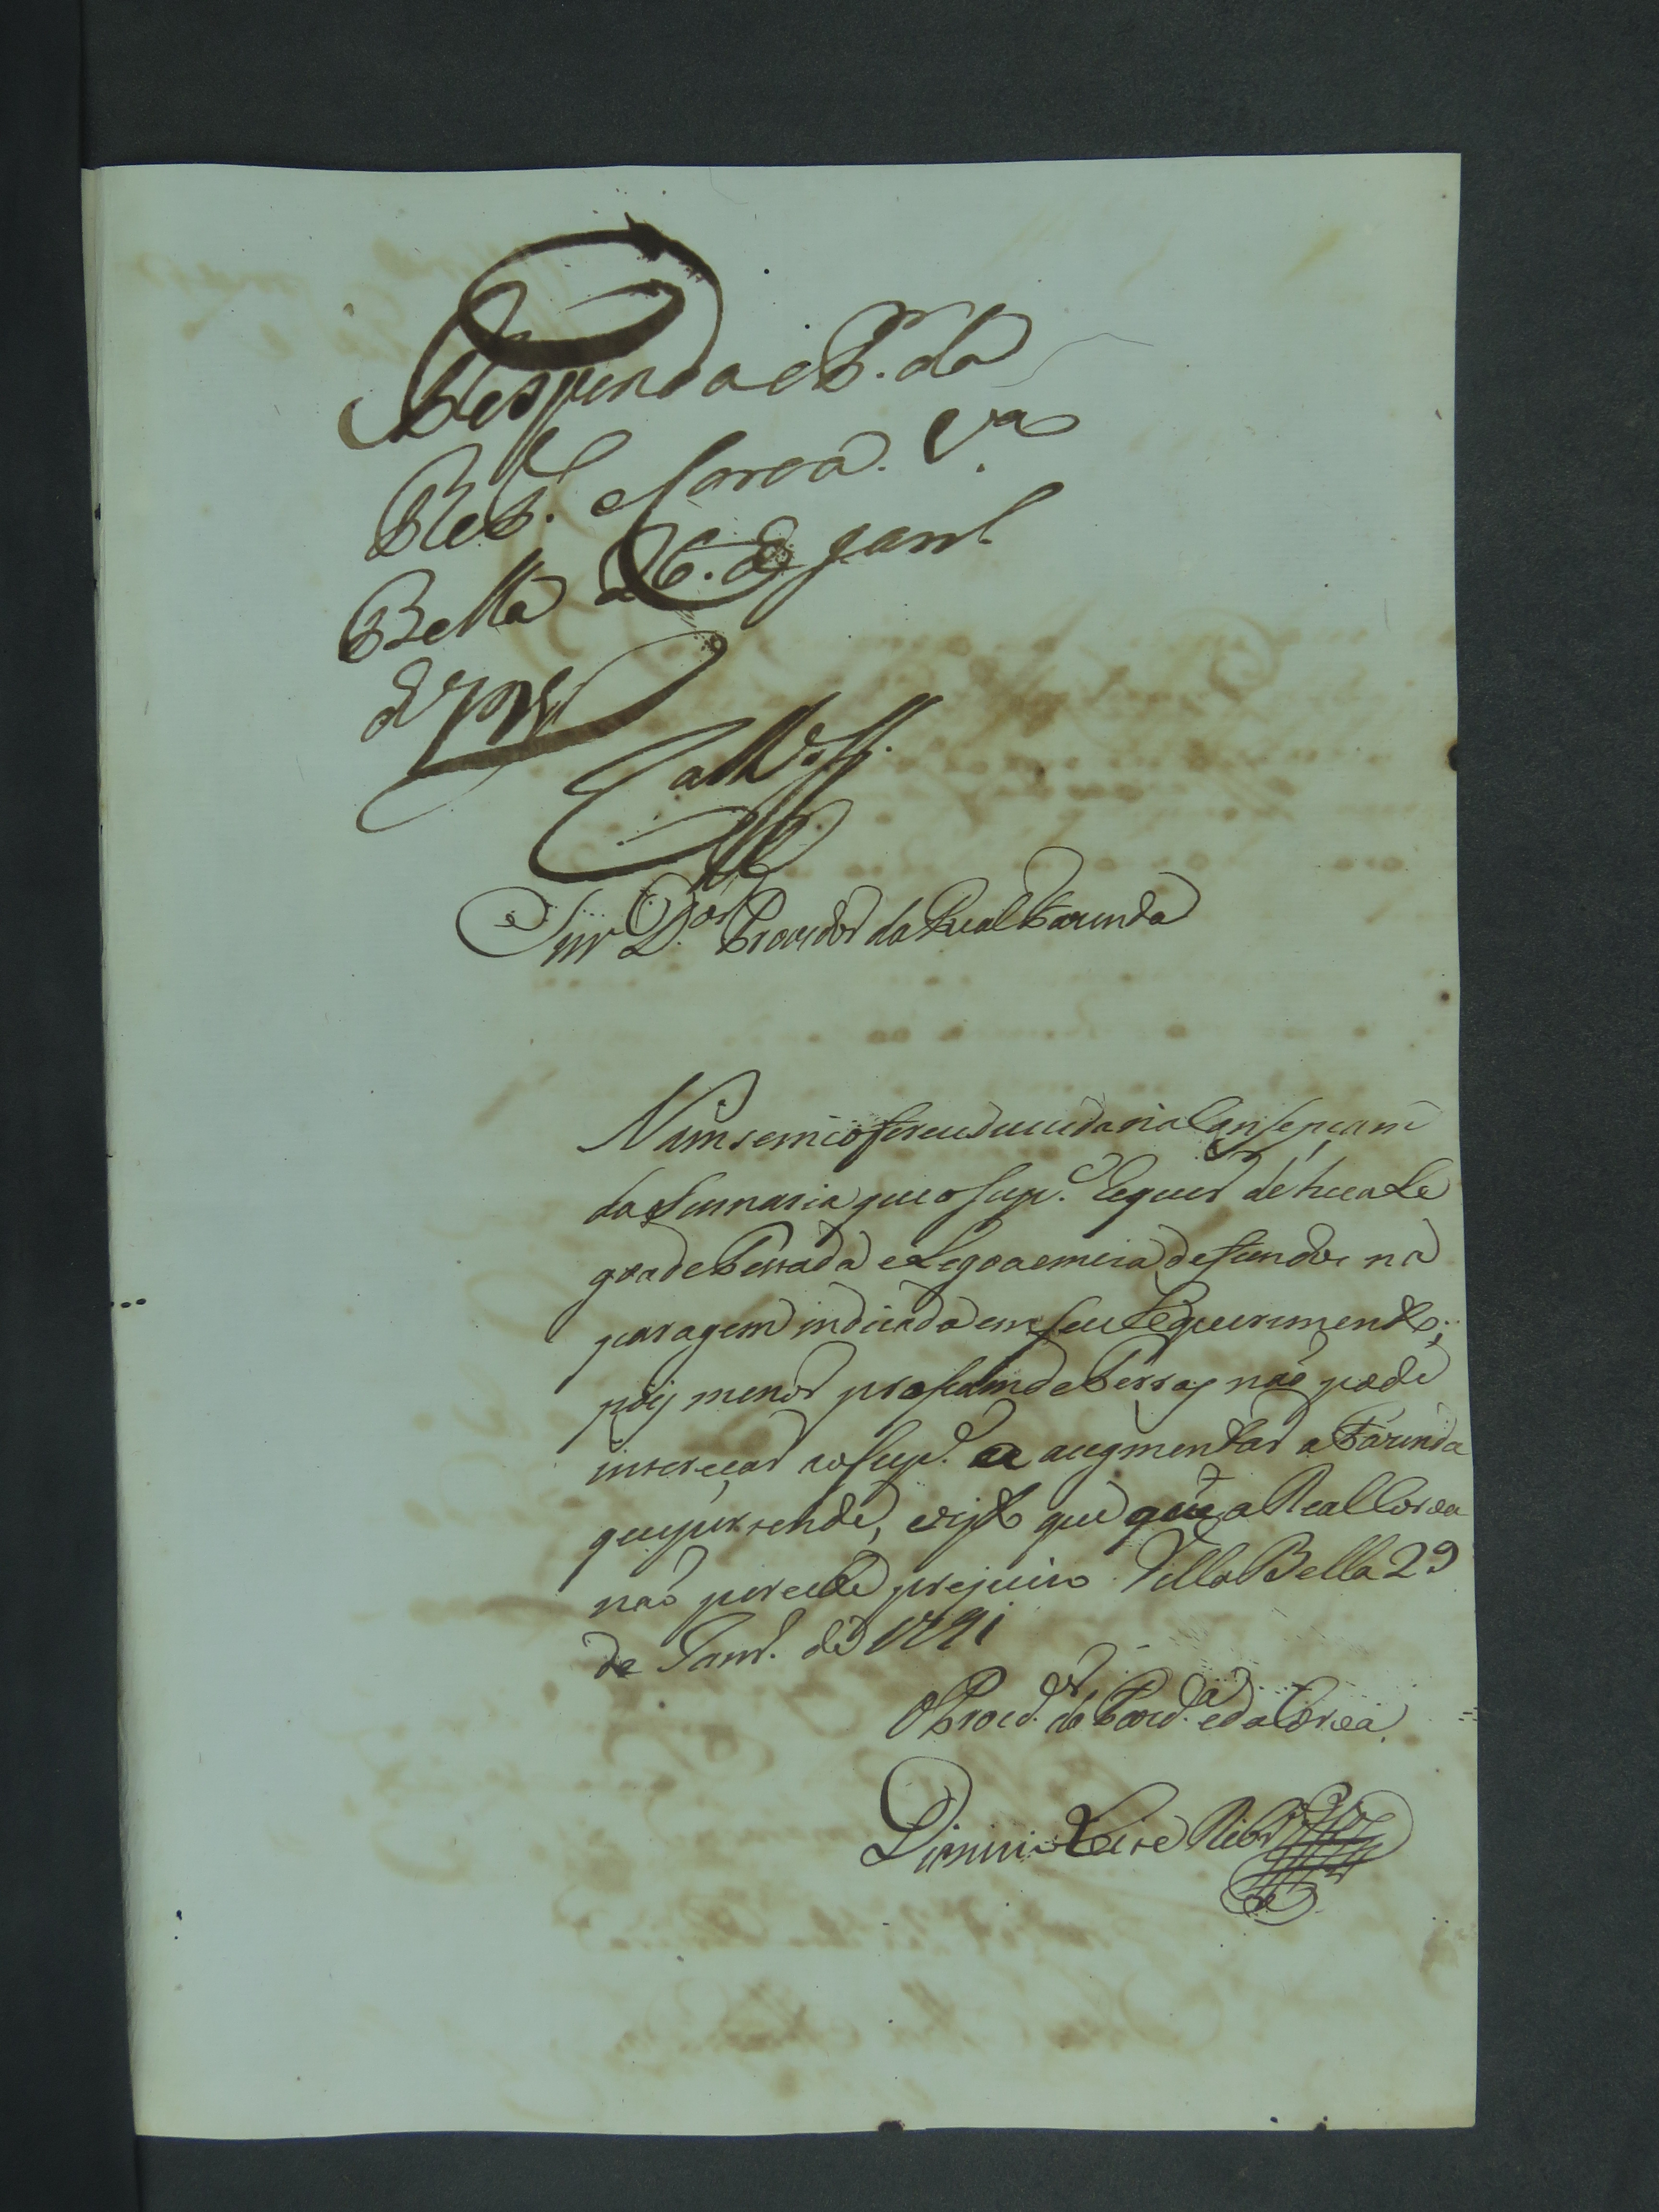 Responda o P. da
R. F. e Coroa. V.ª
Bella 26. de Jan.ro
de 1791
Snr D.or Provedor da Real Fazenda
Nam se me offerece duvida na Conseçam
da Sesmaria que o Sup.e Requer de hua Le
goa de Testada e Legoa e meia de fundo na
paragem indicada em seu Requerimento;
pois menor profundo de terras não pode
intereçar ao Sup.e a augmentar a Fazenda
que pertende, visto que que a Real Coroa
não percebe prejuizo. Villa Bella 29
de Janr.o de 1791
O Procd.or da Fazd.a e da Coroa,
Dionisio Ribr.o